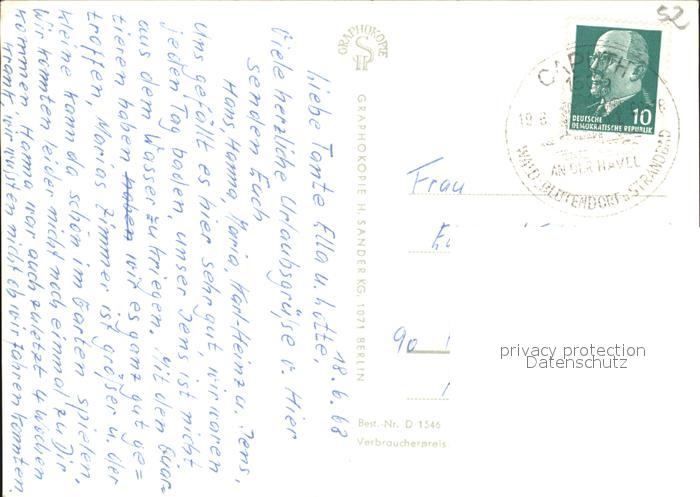 18.6.68
Liebe Tante Ella u. Lotte,
Viele herzliche Urlaubsgrüße v. Hier
senden Euch
Hans, Hanna, Maria, Karl-Heinz u. Jens.
Uns gefällt es hier sehr gut, wir waren
jeden Tag baden, unser Jens ist nicht
aus dem Wasser zu kriegen. Mit den Quar=
tieren haben haben wir es ganz gut ge=
troffen, Marias Zimmer ist größer u. der
kleine kann da schön im Garten spielen.
Wir konnten leider nicht noch einmal zu Dir
kommen, Hanna war auch zuletzt 4 Wochen
krank, wir wussten nicht ob wir fahren konnten.
GRAPHOKOPIE
GRAPHOKOPIE H. SANDER KG, 1071 BERLIN
52
10
DEUTSCHE
DEMOKRATISCHE REPUBLIK
CAPUTH
AN DER HAVEL
WALD-BLÜTENDORF u. STRANDBAD
Frau
90
privacy protection
Datenschutz
Best.-Nr. D 1546
Verbraucherpreis